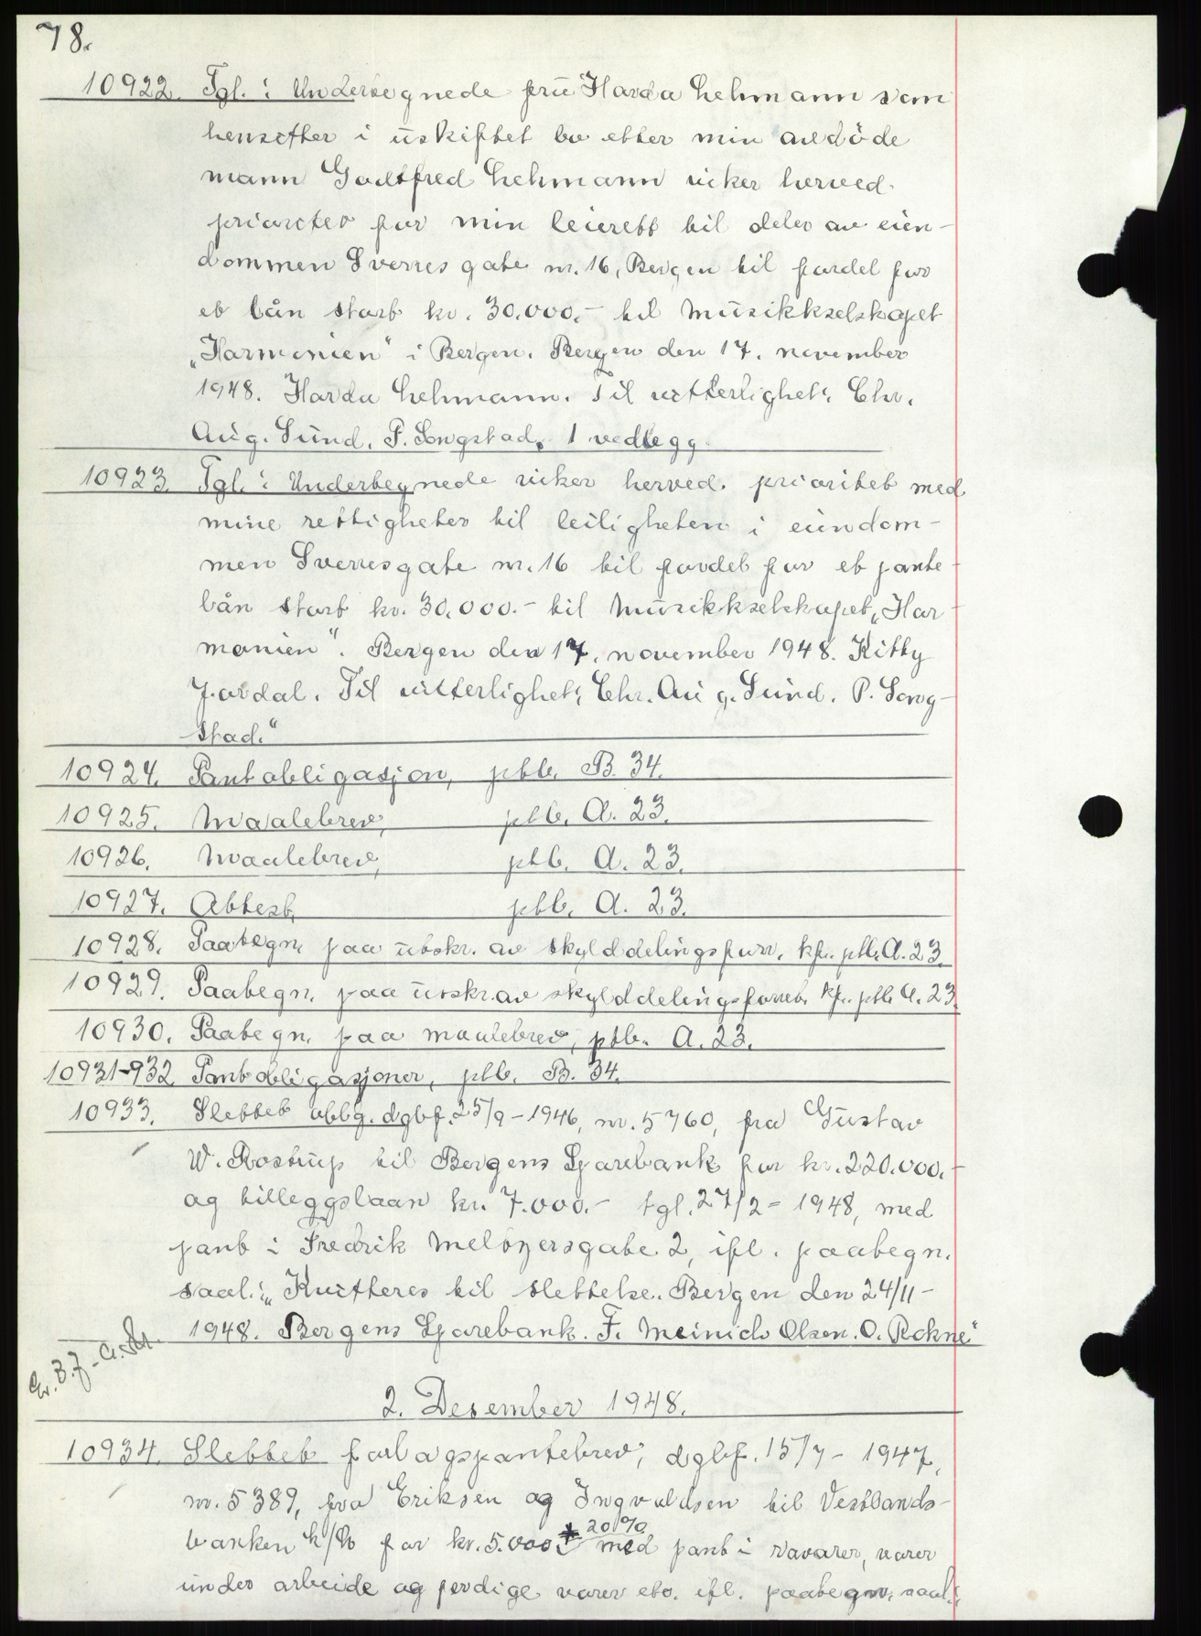 78.
10922. Tgl.: Undertegnede frü Harda Lehmann som
hensitter i üskiftet bo etter min avdöde
mann Godtfred Lehmann viker herved
prioritet for min leierett til deler av eien-
dommen Sverres gate nr. 16, Bergen til fordel for
et lån stort kr. 30.000.- til Müsikkselskapet
„Harmonien" i Bergen. Bergen den 17. november
1948. Harda Lehmann. Til vitterlighet: Chr.
Aüg. Sünd. P. Songstad. 1 vedlegg.
10923. Tgl.: Undertegnede viker herved prioritet med
mine rettigheter til leiligheten i eiendom-
men Sverresgate nr. 16 til fordel for et pante-
lån stort kr. 30.000.- til Müsikkselskapet „Har-
monien". Bergen den 17. november 1948. Kitty
Jordal. Til vitterlighet: Chr. Aüg. Sünd. P. Song-
stad."
10924. Pantobligasjon, ptb. B. 34.
10925. Maalebrev, ptb. A. 23.
10926. Maalebrev, ptb. A. 23.
10927. Attest, ptb. A. 23.
10928. Paategn. paa ütskr. av skylddelingsforr. kfr. ptb. A. 23.
10929. Paategn. paa ütskr. av skylddelingsforretn. kfr. ptb. A. 23.
10930. Paategn. paa maalebrev, ptb. A. 23.
10931-932 Pantobligasjoner, ptb. B. 34.
10933. Slettet obbg. dgbf. 25/9-1946, nr. 5760, fra Güstav
W. Rostrüp til Bergens Sparebank for kr. 220.000.-
og tilleggslaan kr. 7.000.- tgl. 27/2-1948, med
pant i Fredrik Meltzersgate 2, ifl. paategn.
saal.: „Kvitteres til slettelse. Bergen den 24/11-
1948. Bergens Sparebank. F. Meinich Olsen. O. Rokne"
2. Desember 1948.
10934. Slettet forlagspantebrev, dgbf. 15/7-1947,
nr. 5389, fra Eriksen og Ingvaldsen til Vestlands-
banken A/S for kr. 5.000.- + 20% med pant i raavarer, varer
ünder arbeide og ferdige varer etc. ifl. paategn. saal.: